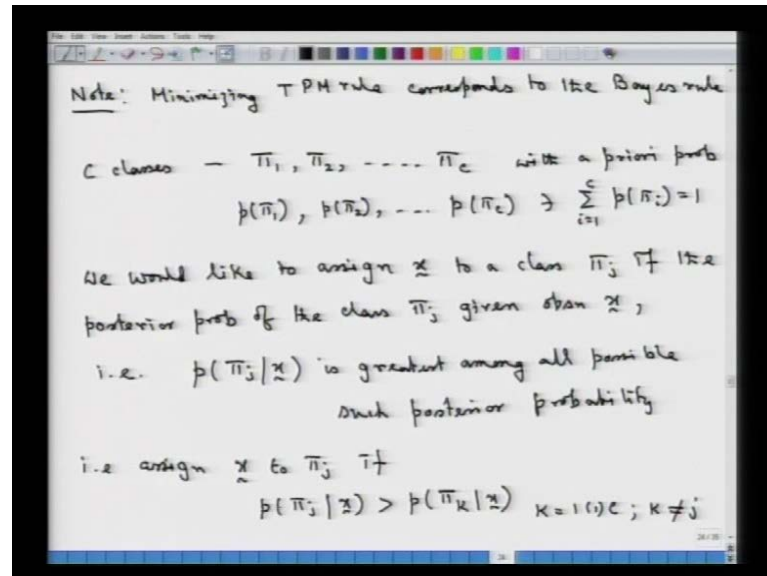 File Edit View Insert Actions Tools Help
Note: Minimizing TPM rule corresponds to the Bayes rule
C classes – π₁, π₂, ---- π_c with a priori prob
p(π₁), p(π₂), --- p(π_c) ∋ ∑_{i=1}^{c} p(π_i) = 1
We would like to assign x̰ to a class π_j if the
posterior prob of the class π_j given obsn x̰,
i.e. p(π_j|x̰) is greatest among all possible
such posterior probability
i.e assign x̰ to π_j if
p(π_j|x̰) > p(π_k|x̰) K = 1(1)C; K ≠ j